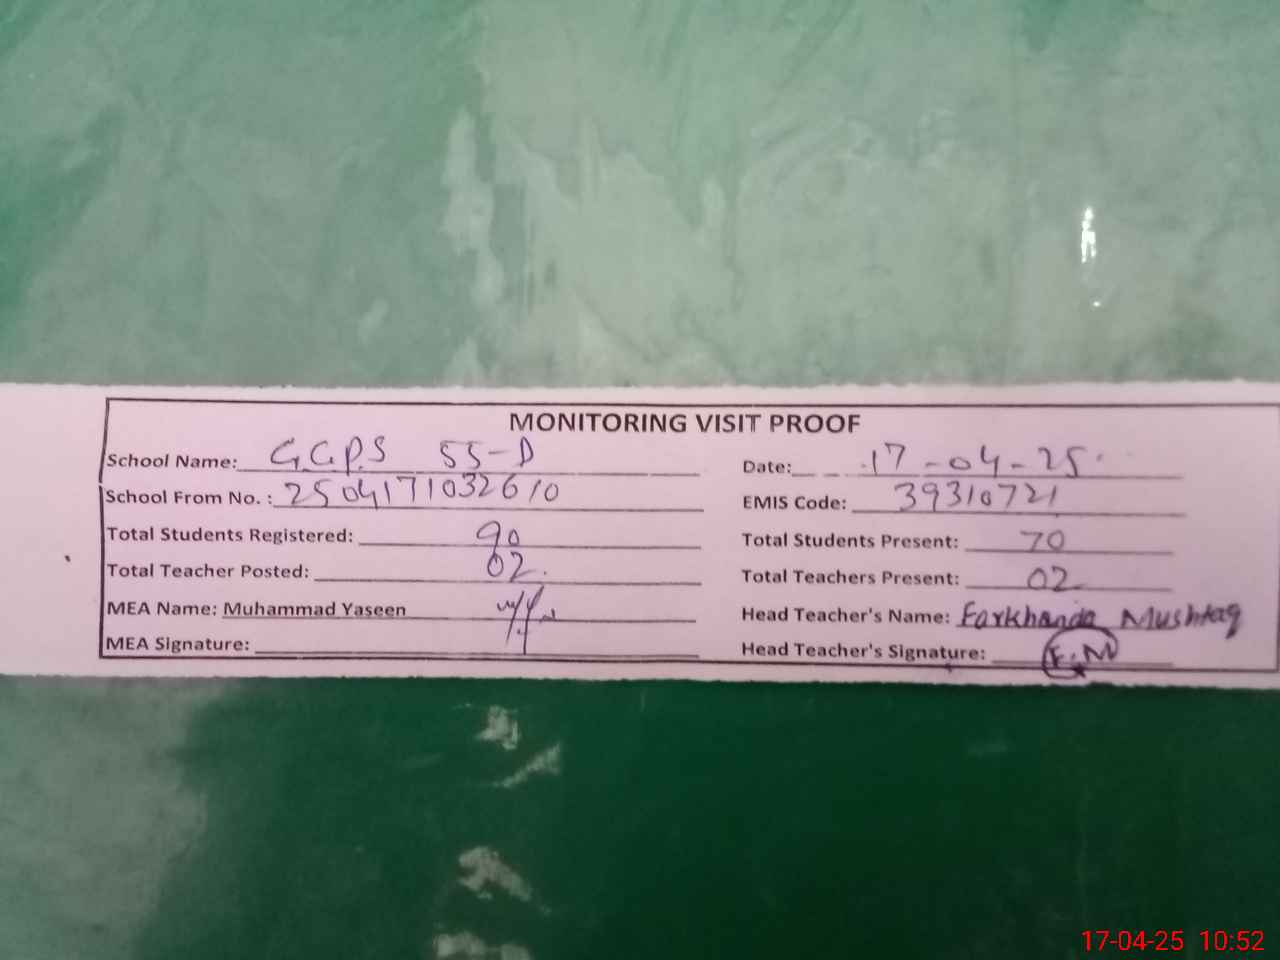 MONITORING VISIT PROOF
School Name: G.G.P.S 55-D Date: 17-04-25
School From No. : 2504171032610 EMIS Code: 39310721
Total Students Registered: 90 Total Students Present: 70
Total Teacher Posted: 02. Total Teachers Present: 02
MEA Name: Muhammad Yaseen Head Teacher's Name: Farkhanda Mushtaq
MEA Signature: Head Teacher's Signature: F.M
17-04-25 10:52